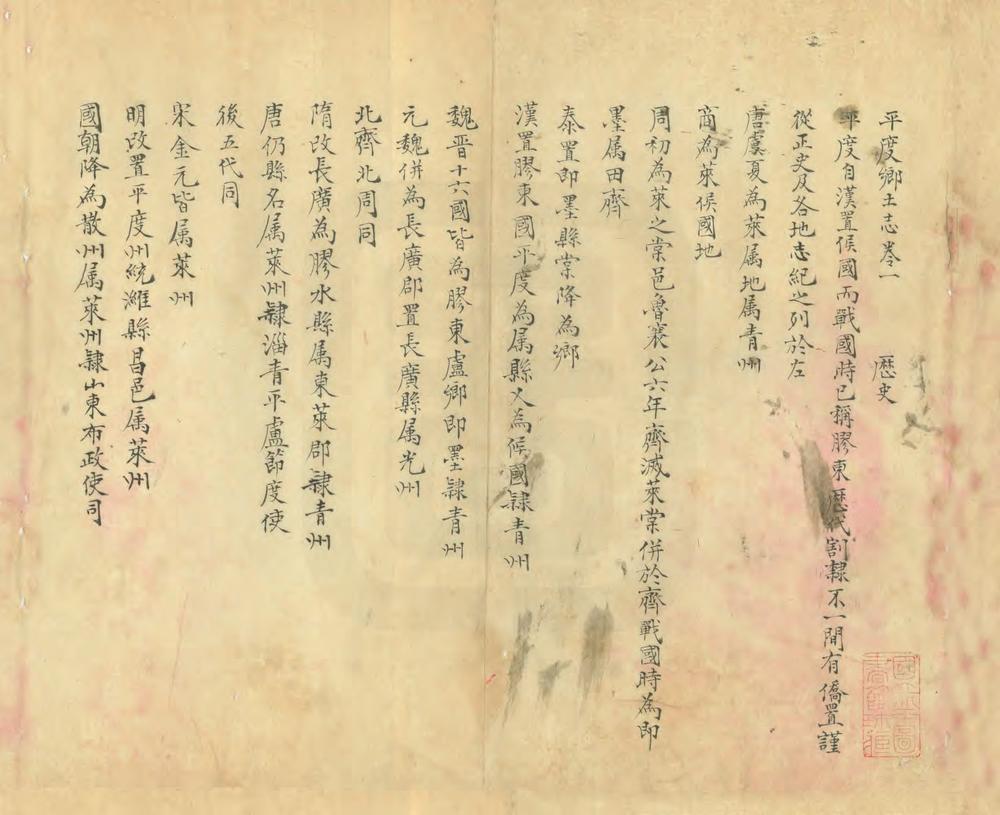 平度鄉土志卷一　歷史
平度自漢置侯國而戰國時已稱膠東歷代割隸不一間有僑置謹
從正史及各地志紀之列於左
唐虞夏為萊属地属青州
商為萊侯國地
周初為萊之棠邑魯襄公六年齊滅萊棠併於齊戰國時為即
墨属田齊
秦置即墨縣棠降為鄉
漢置膠東國平度為属縣又為侯國隸青州
魏晋十六國皆為膠東盧鄉即墨隸青州
元魏併為長廣郡置長廣縣属光州
北齊北周同
隋改長廣為膠水縣属東萊郡隸青州
唐仍縣名属萊州隸淄青平盧節度使
後五代同
宋金元皆属萊州
明改置平度州統濰縣昌邑属萊州
國朝降為散州属萊州隸山東布政使司